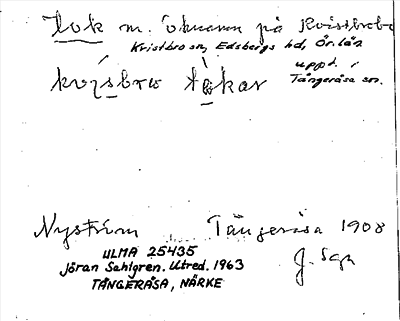 Tok m. öknamn på Kvistbrobo
Kvistbro sn, Edsbergs hd, Ör. län
uppt. i
Tångeråsa sn.
Nyström Tångeråsa 1908
ULMA 25435
Jöran Sahlgren. Utred. 1963
TÅNGERÅSA, NÄRKE
J. Sgn